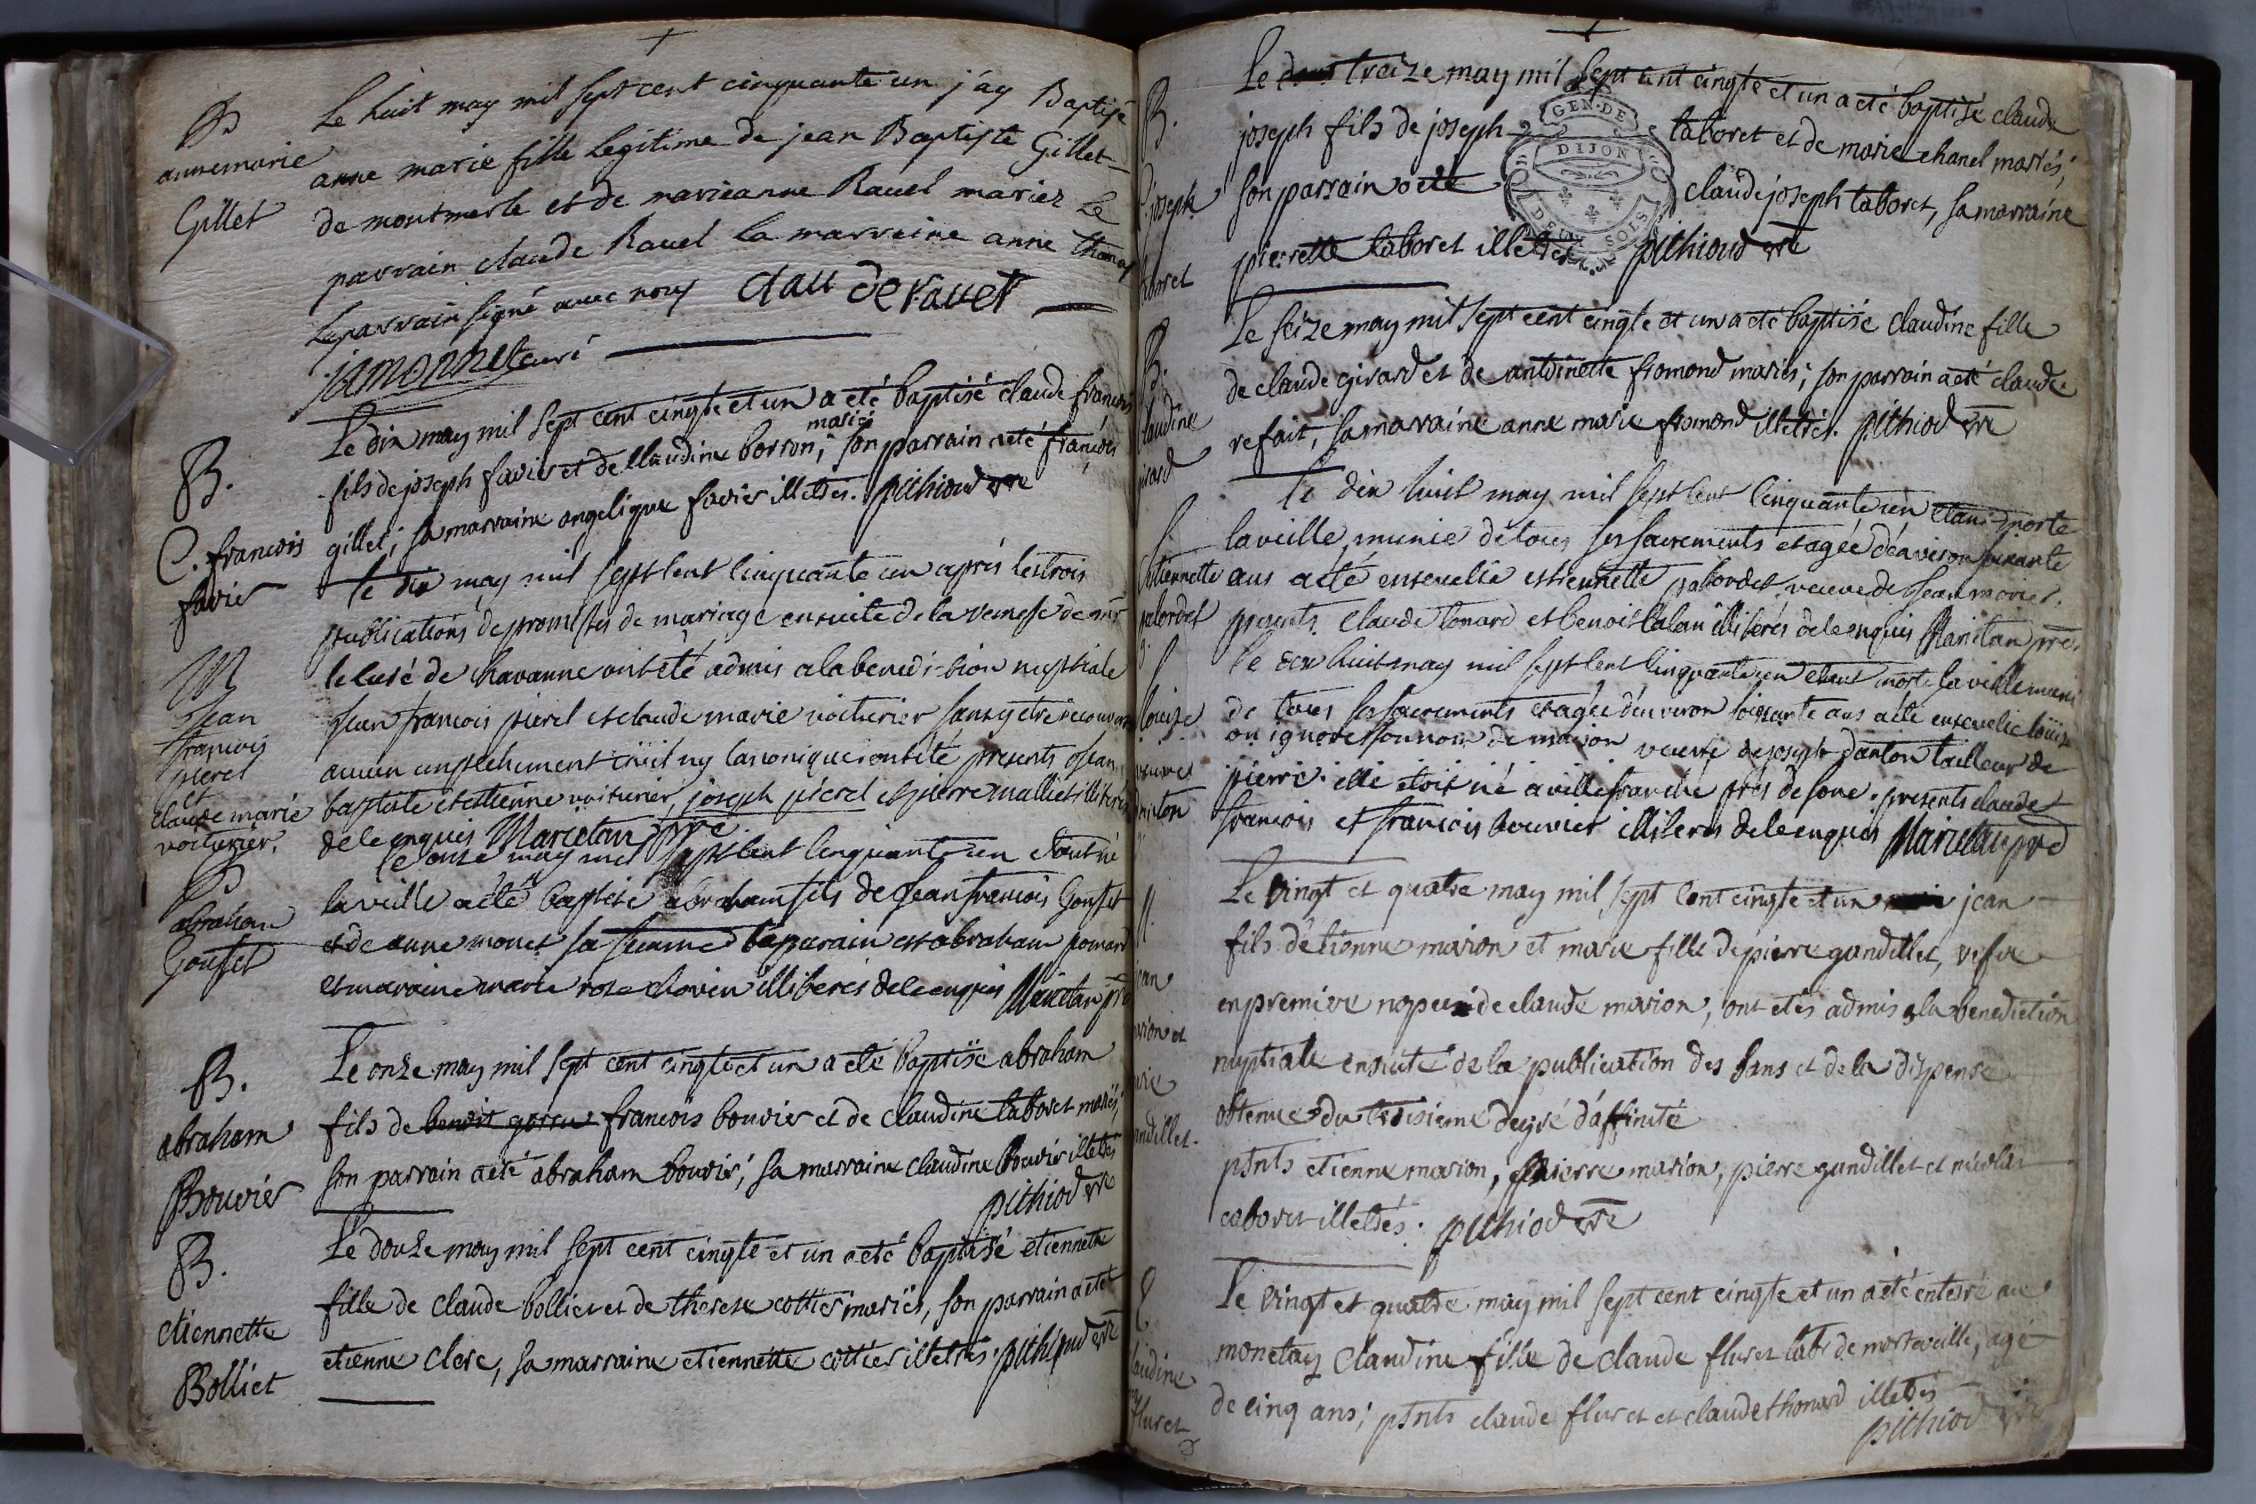 B
annemarie
Gillet
Le huit may mil sept cent cinquante un j'ay Baptisé
anne marie fille Legitime de jean Baptiste Gillet
de montmerle et de marieanne Ravel mariez Le
parrain claude Ravel la marreine anne thomas
Le parrain signé avec nous claude ravet
jamonnet curé
B.
C. francois
favier
Le dix may mil sept cent cinqte et un a eté baptisé claude francois
fils de joseph favier et de Claudine borron, mariés; son parrain a eté françois
gillet; sa marraine angelique favier illetrés. pithioud vre
M
Jean
francois
pierel
et
claude marie
voiturier.
le dix may mil sept cent cinquante un aprés les trois
publications de promesses de mariage ensuite de la remesse de mr
le curé de chavanne ont été admis a la benediction nuptiale
Jean francois pierel et claude marie voiturier sans y etre decouvert
aucun empechement civil ny canonique ont été presents Jean
baptiste et ettienne voiturier, joseph piérel et pierre malliet illiterés
de ce enquis Marietan pre.
B
abraham
Gousset
le onze may mil sept cent cinquante un etant né
la veille a été baptisé abraham fils de Jean francois Gousset
et de anne monet sa femme le parain est abraham ponard
et maraine marie rose chovin illiterés de ce enquis Marietan pre
B.
abraham
Bouvier
Le onze may mil sept cent cinqte et un a eté baptisé abraham
fils de benoit gorru francois bouvier et de claudine taboret mariés;
son parrain a eté abraham bouvier; sa marraine claudine Bouvier illetrés
pithiod vre
B.
etiennette
Bolliet
Le douze may mil sept cent cinqte et un a eté baptisé etiennette
fille de claude bolliet et de therese cottier mariés, son parrain a eté
etienne clerc, sa marraine etiennette cottier illetrés. pithioud vre
B.
joseph
taboret
Le treize may mil sept cent cinqte et un a eté baptisé claude
joseph fils de joseph taboret et de marie chanel mariés;
son parrain a eté claude joseph taboret, sa marraine
pierrette taboret illetrés pithioud vre
GEN. DE
DIJON
DEUX SOLS
B.
claudine
girard
Le seize may mil sept cent cinqte et un a eté baptisé claudine fille
de claude girard et de antoinette fromond mariés; son parrain a eté claude
refait, sa marraine anne marie fromond illetrés. pithiod vre
Etiennette
palordet
le dix huit may mil sept cent cinquante un etant morte
la veille, munie de tous ses sacrements et agée d'environ soixante
ans a été ensevelie estiennette palordet veuve de Jean morier.
presents Claude tonard et benoit lalan illiterés de ce enquis Marietan pre.
louise
veuve
danton
le dix huit may mil sept cent cinquante un etant morte la veille munie
de tous ses sacrements et agée d'environ soixante ans a été ensevelie louise
on ignore son nom de maison veuve de joseph danton tailleur de
pierre. elle etoit né a ville franche prés de sone. presents claude
francois et francois bouvier illiterés de ce enquis Marietan pre
M.
jean
marion et
marie
gandillet.
Le vingt et quatre may mil sept cent cinqte et un jean
fils d'etienne marion et marie fille de pierre gandillet, vefve
en premiere nopces de claude marion, ont etés admis a la benediction
nuptiale ensuite de la publication des bans et de la dispense
obtenue du troisieme degré d'affinité
pnts etienne marion, pierre marion, pierre gandillet et nicolas
caboret illetrés. pithiod vre
E
claudine
fluret
Le vingt et quatre may mil sept cent cinqte et un a eté enterré au
monetay claudine fille de claude fluret labr de morteveille, agé
de cinq ans; pnts claude fluret et claude thonard illetrés
pithiod vre